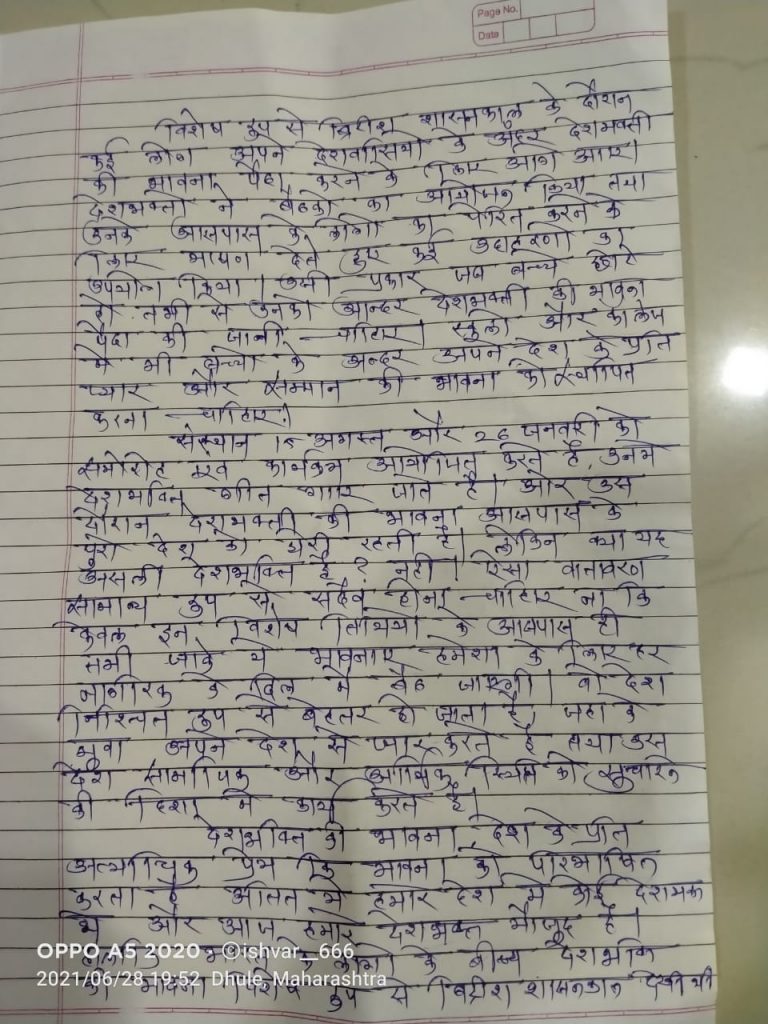 Page No.
Date
विशेष रुप से ब्रिटिश शासनकाल के दौरान
कई लोग अपने देशवासियो के अंदर देशभक्ती
की भावना पैदा करने के लिए आगे आए।
देशभक्तो ने बैठको का आयोजन किया तथा
उनके आसपास के लोगो को प्रेरित करने के
लिए भाषण देते हुए कई उदाहरणो का
उपयोग किया। उसी प्रकार जब बच्चे छोटे
हो तभी से उनके अन्दर देशभक्ती की भावना
पैदा की जानी चाहिए। स्कूलो और कालेज
मे भी बच्चो के अन्दर अपने देश के प्रति
प्यार और सम्मान की भावना को स्थापित
करना चाहिए।
संस्थान 15 अगस्त और 26 जनवरी को
समोरोह एवं कार्यक्रम आयोजित करते है, उनमे
देशभक्ति गीत गाए जाते है। और उस
दौरान देशभक्ती की भावना आसपास के
पुरे देश को घेरी रहती है। लेकिन क्या यह
असली देशभक्ति है? नही। ऐसा वातावरण
सामान्य रुप से सदैव होना चाहिए ना कि
केवल इन विशेष तिथियो के आसपास ही
तभी जाके ये भावनाए हमेशा के लिए हर
नागरिक के दिल मे बैठ जाएगी। वो देश
निश्चित रुप से बेहतर हो जाता है, जहा के
युवा अपने देश से प्यार करते है तथा उस
देश सामाजिक और आर्थिक स्थिति को सुधारने
की दिशा मे कार्य करते है।
देशभक्ति की भावना, देश के प्रति
अत्याधिक प्रेम कि भावना को परिभाषित
करता है अतित मे हमारे देश मे कोई देशभक्त
थे और आज हमारे देशभक्त मौजुद है।
लोगो के बीच्च देशभक्ति
की भावना विशेष रुप से ब्रिटीश शासनकाल देखी थी
OPPO A5 2020 ©ishvar_666
2021/06/28 19:52 Dhule, Maharashtra